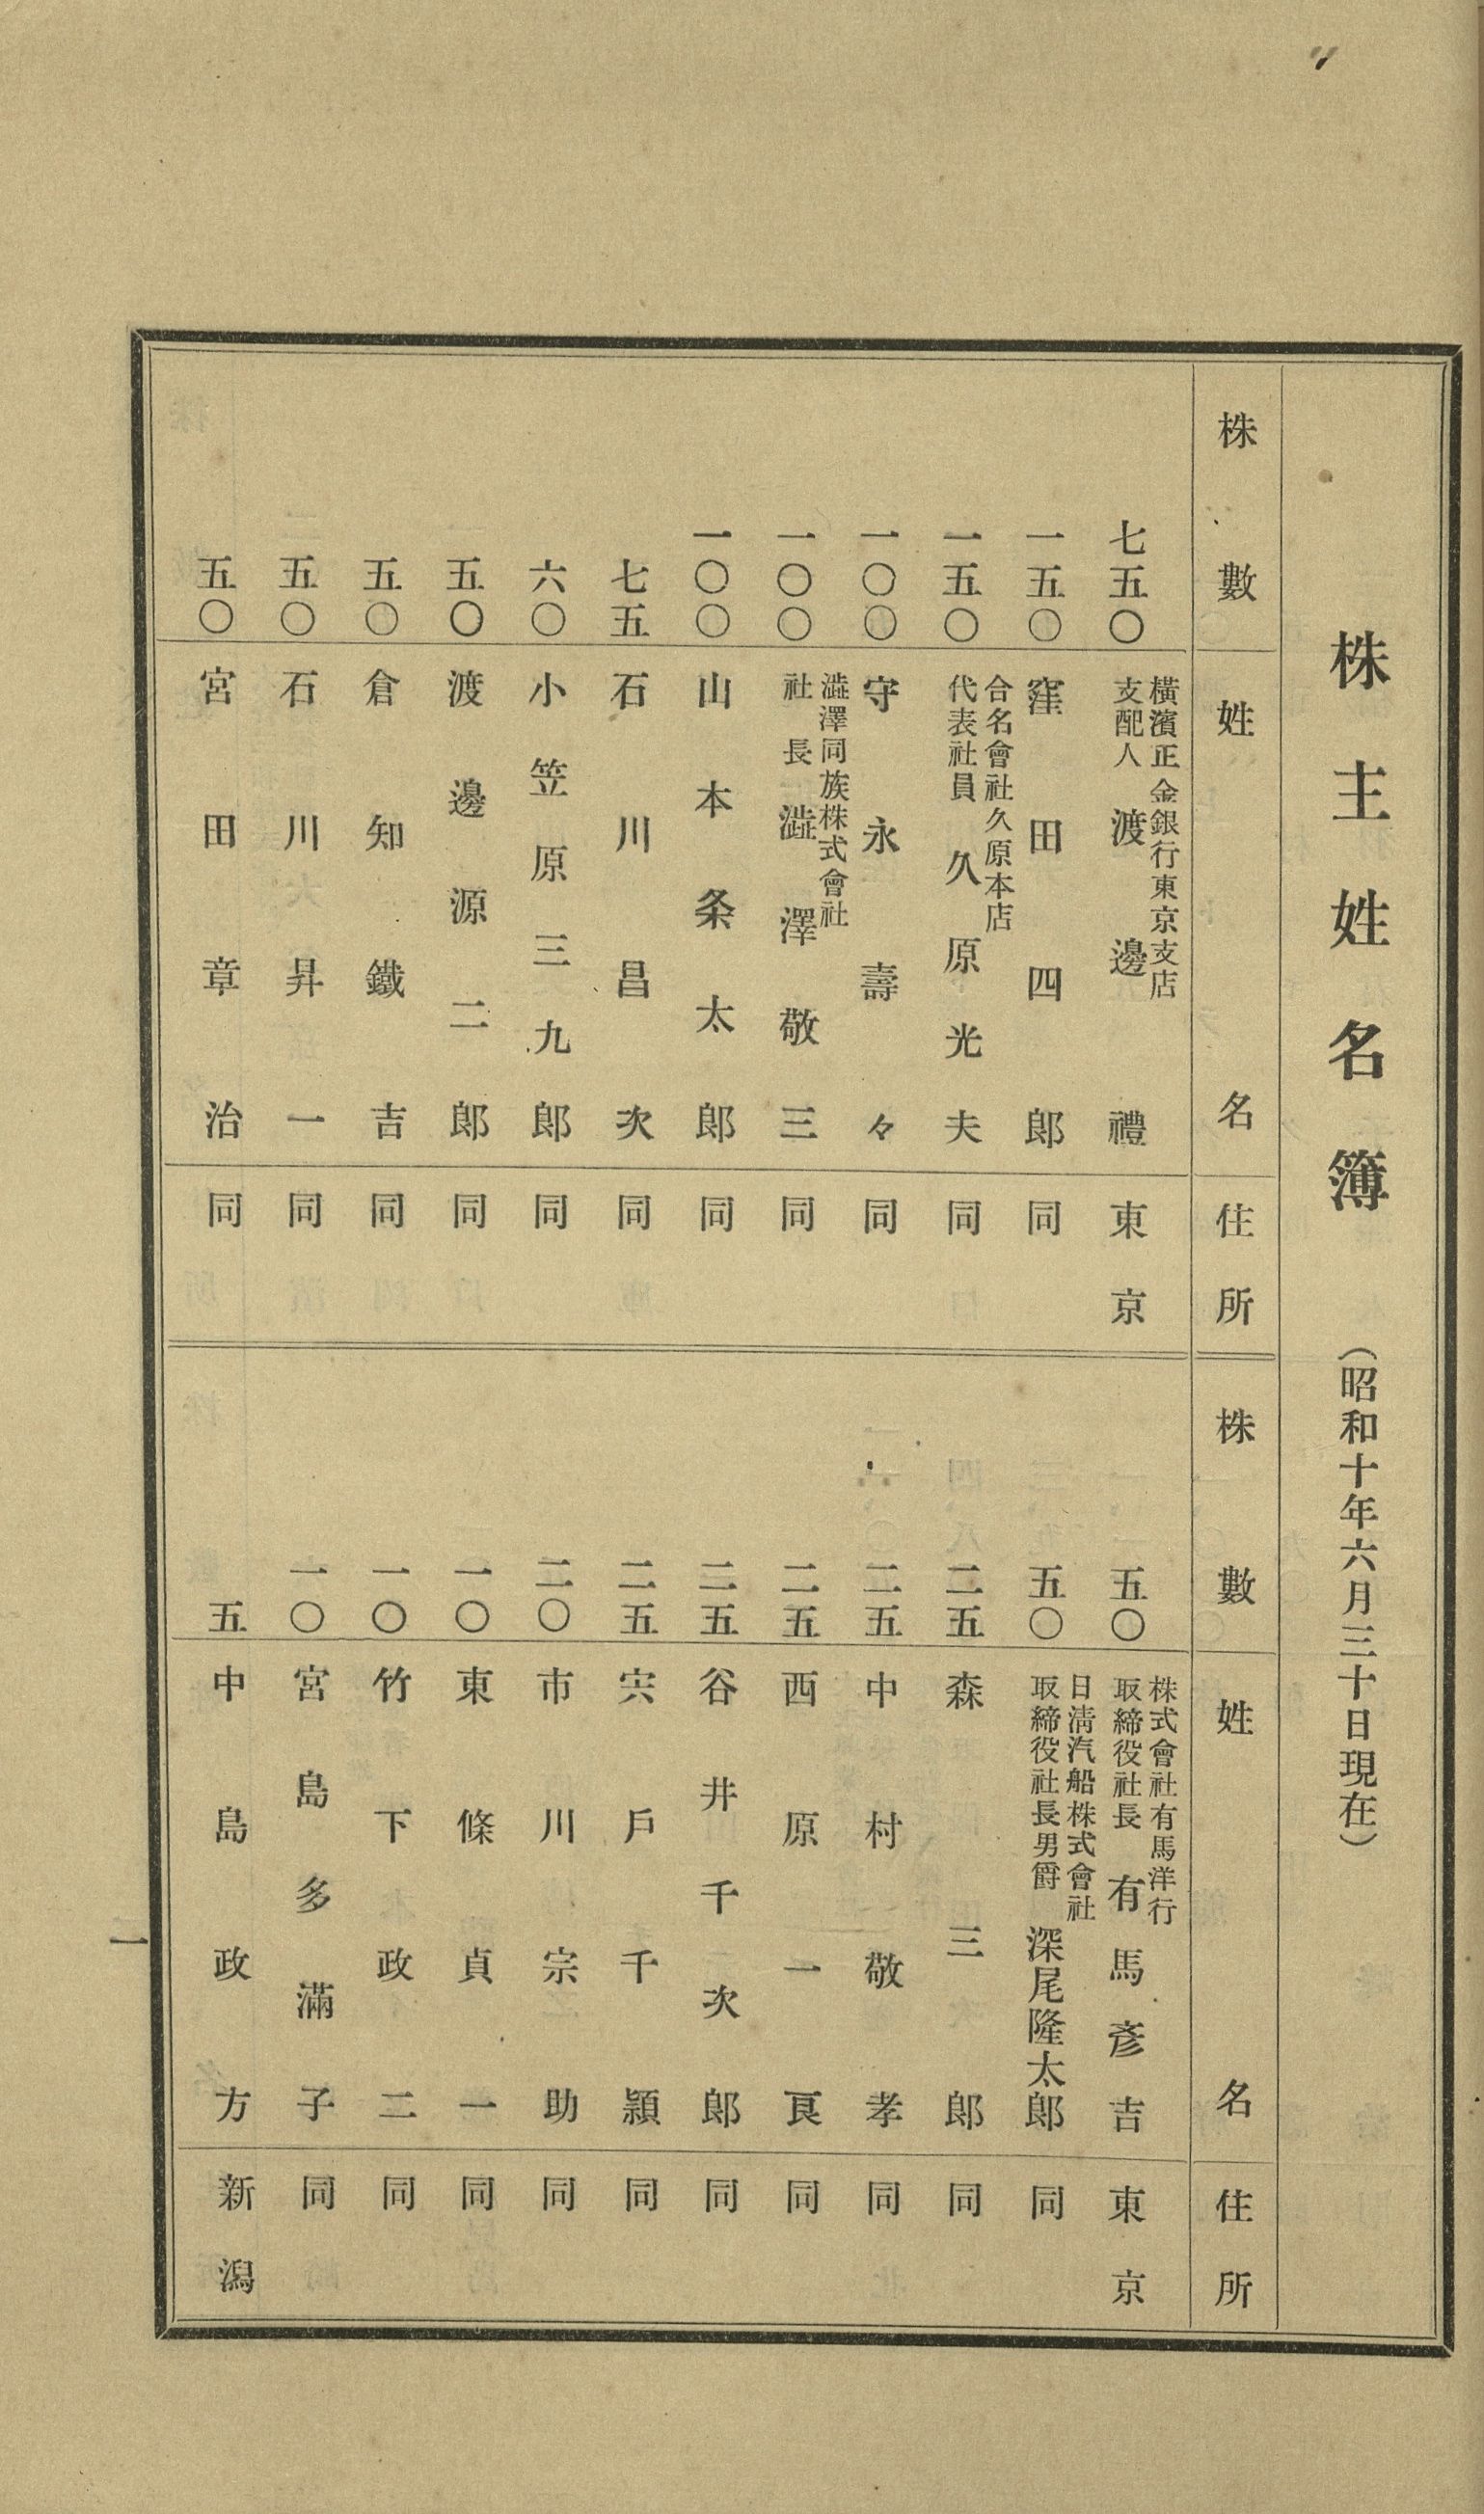 株主姓名簿 （昭和十年六月三十日現在）
株數 姓名 住所
七五〇 橫濱正金銀行東京支店 支配人 渡邊禮 東京
一五〇 窪田四郎 同
一五〇 合名會社久原本店 代表社員 久原光夫 同
一〇〇 守永壽々 同
一〇〇 澁澤同族株式會社 社長 澁澤敬三 同
一〇〇 山本条太郎 同
七五 石川昌次 同
六〇 小笠原三九郎 同
五〇 渡邊源二郎 同
五〇 倉知鐵吉 同
五〇 石川昇一 同
五〇 宮田章治 同
株數 姓名 住所
五〇 株式會社有馬洋行 取締役社長 有馬彥吉 東京
五〇 日淸汽船株式會社 取締役社長男爵 深尾隆太郎 同
二五 森三郎 同
二五 中村敬孝 同
二五 西原一 同
二五 谷井千次郎 同
二五 宍戶千穎 同
二〇 市川宗助 同
一〇 東條貞一 同
一〇 竹下政二 同
一〇 宮島多滿子 同
五 中島政方 新潟
一